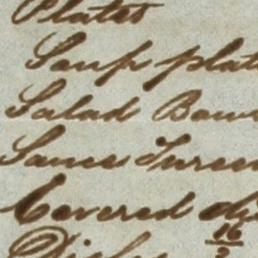 Plates
Soup plat
Salad Bow
Sauce Tureen
Covered di
16